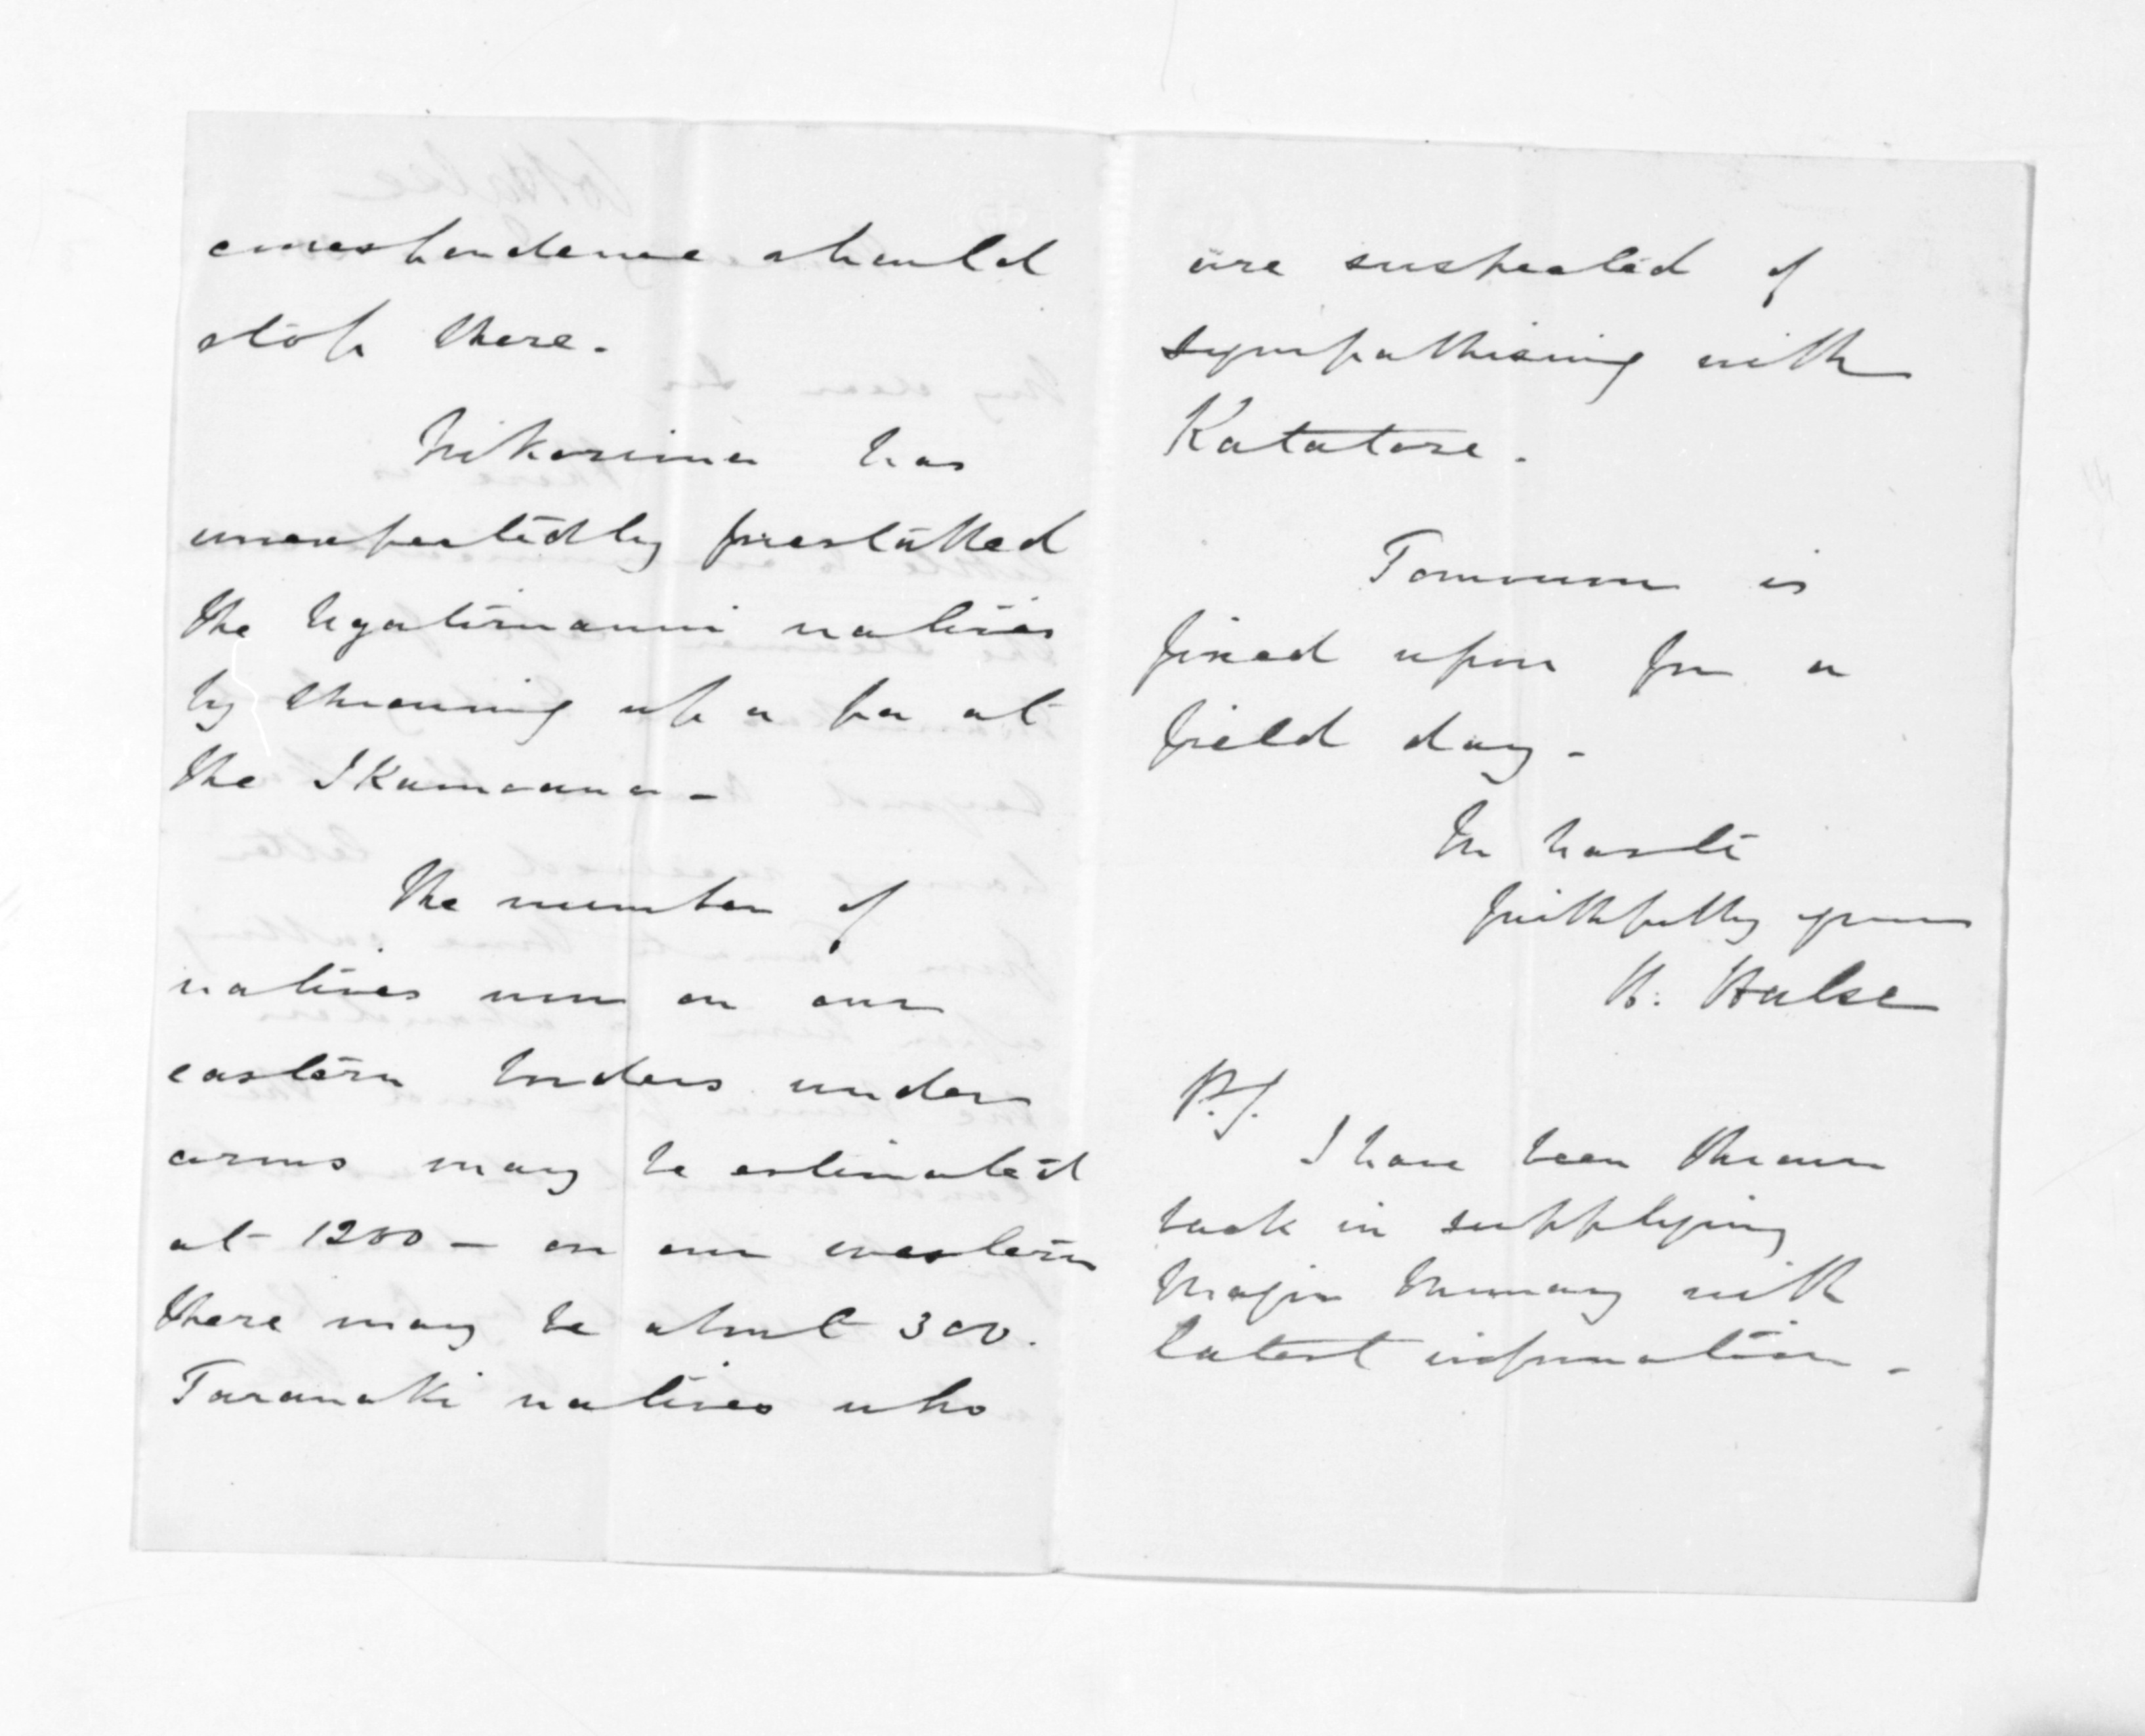 correspondence should
stop there.
Nikorima has
unexpectedly forestalled
the Ngatiruanui natives
by throwing up a pa at
the Ikamoana -
The number of
natives now on our
eastern borders under
arms may be estimated
at 1200 - on our western
there may be about 300.
Taranaki natives who
are suspected of
sympathising with
Katatore.
Tomorrow is
fixed upon for a
field day -
In haste
faithfully yours
H. Halse
P.S.
I have been thrown
back in supplying
Major Murray with
latest information -